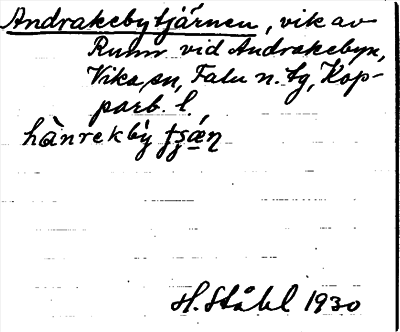 Andrakebytjärnen, vik av
Runn vid Andrakebyn,
Vika sn, Falu n. tg, Kop-
parb. l.
hànrekby̆ tʂǽṇ
H. Ståhl 1930